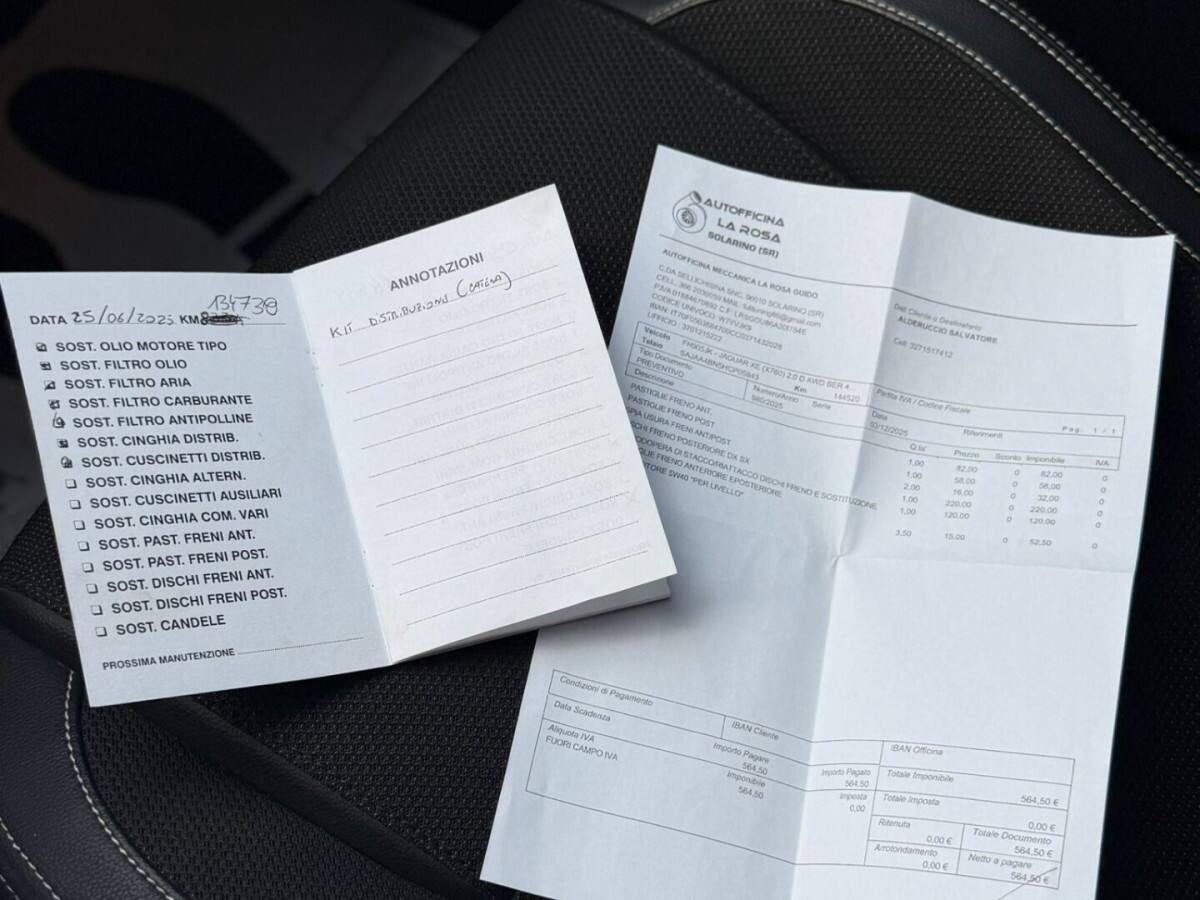 134739
DATA 25/06/2025 KM
SOST. OLIO MOTORE TIPO
SOST. FILTRO OLIO
SOST. FILTRO ARIA
SOST. FILTRO CARBURANTE
SOST. FILTRO ANTIPOLLINE
SOST. CINGHIA DISTRIB.
SOST. CUSCINETTI DISTRIB.
SOST. CINGHIA ALTERN.
SOST. CUSCINETTI AUSILIARI
SOST. CINGHIA COM. VARI
SOST. PAST. FRENI ANT.
SOST. PAST. FRENI POST.
SOST. DISCHI FRENI ANT.
SOST. DISCHI FRENI POST.
SOST. CANDELE
PROSSIMA MANUTENZIONE
ANNOTAZIONI
KIT DISTRIBUZIONE (CATENA)
AUTOFFICINA
LA ROSA
SOLARINO (SR)
AUTOFFICINA MECCANICA LA ROSA GUIDO
C.DA SELLICHISINA SNC, 96010 SOLARINO (SR)
IBAN: IT70F0503684700CC0371432028
UFFICIO : 3701215222
Dati Cliente o Destinatario
ALDERUCCIO SALVATORE
Cell: 3271517412
Veicolo JAGUAR XE (X760) 2.0 D AWD SER 4...
Telaio
Km 144520
Partita IVA / Codice Fiscale
Tipo Documento Numero/Anno Serie Data Riferimenti Pag. 1 / 1
PREVENTIVO 980/2025 03/12/2025
Descrizione Q.tà Prezzo Sconto Imponibile IVA
PASTIGLIE FRENO ANT. 1,00 82,00 0 82,00 0
PASTIGLIE FRENO POST 1,00 58,00 0 58,00 0
PIA USURA FRENI ANT/POST 2,00 16,00 0 32,00 0
SCHI FRENO POSTERIORE DX SX 1,00 220,00 0 220,00 0
ODOPERA DI STACCO/RIATTACCO DISCHI FRENO E SOSTITUZIONE 1,00 120,00 0 120,00 0
GLIE FRENO ANTERIORE EPOSTERIORE
OTORE 5W40 "PER LIVELLO" 3,50 15,00 0 52,50 0
Condizioni di Pagamento
IBAN Cliente
IBAN Officina
Data Scadenza Importo Pagare Importo Pagato
564,50 564,50
Aliquota IVA Imponibile Imposta
FUORI CAMPO IVA 564,50 0,00
Totale Imponibile
564,50 €
Totale Imposta
0,00 €
Ritenuta
0,00 €
Totale Documento
564,50 €
Arrotondamento
0,00 €
Netto a pagare
564,50 €